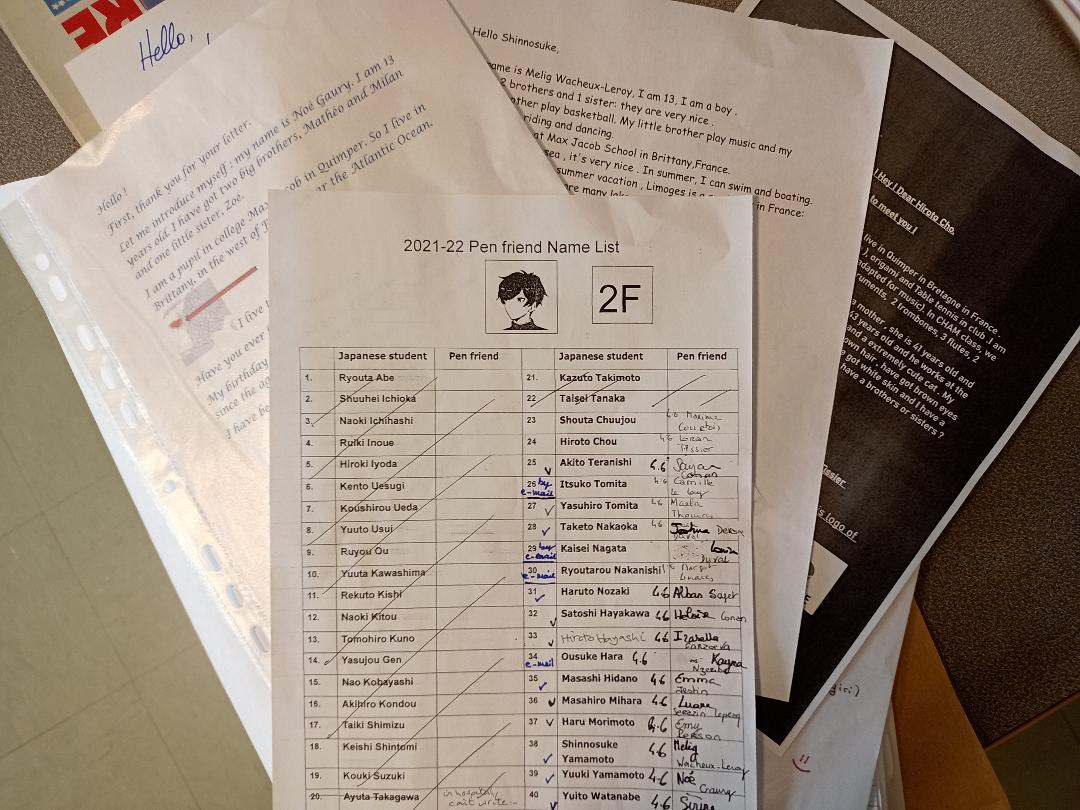 KE
Hello,
Hello !
First, thank you for your letter.
Let me introduce myself : my name is Noé Gaury. I am 13
years old. I have got two big brothers, Mathéo and Milan
and one little sister, Zoe.
I am a pupil in college Max
cob in Quimper. So I live in
Brittany, in the west of
the Atlantic Ocean.
I live
Have you ever
My birthday
since the
I have be
Hello Shinnosuke,
ame is Melig Wacheux-Leroy, I am 13, I am a boy .
2 brothers and 1 sister: they are very nice .
other play basketball. My little brother play music and my
riding and dancing.
at Max Jacob School in Brittany,France.
sea , it's very nice . In summer, I can swim and boating.
summer vacation , Limoges is a
in France:
are many
! Hey ! Dear Hiroto Cho,
to meet you !
live in Quimper in Bretagne in France
), origami and Table tennis in club. I am
adapted for music). In CHAM class, we
ruments, 2 trombones, 3 flutes, 2
a mother , she is 41 years old and
43 years old and he works at the
and a extremely cute cat. My
own hair , I have got brown eyes
got white skin and I have a
have a brothers or sisters ?
issier
's logo of
2021-22 Pen friend Name List
2F
Japanese student Pen friend Japanese student Pen friend
1. Ryouta Abe 21. Kazuto Takimoto
2. Shuuhei Ichioka 22 Taisei Tanaka
3. Naoki Ichihashi 23 Shouta Chuujou 4.6
4. Ruiki Inoue 24 Hiroto Chou 4.6 Tissier
5. Hiroki Iyoda 25 Akito Teranishi 4.6
6. Kento Uesugi 26 by e-mail Itsuko Tomita 4.6 Camille
7. Koushirou Ueda 27 Yasuhiro Tomita 4.6 Thomas
8. Yuuto Usui 28 Taketo Nakaoka 4.6 Joshua
9. Ruyou Ou 29 by e-mail Kaisei Nagata Louis Duval
10. Yuuta Kawashima 30 e-mail Ryoutarou Nakanishi Margot
11. Rekuto Kishi 31 Haruto Nozaki 4.6 Alban
12. Naoki Kitou 32 Satoshi Hayakawa 4.6 Héloïse
13. Tomohiro Kuno 33 Hiroto Hayashi 4.6 Izabella
14. Yasujou Gen 34 e-mail Ousuke Hara 4.6 Kayna
15. Nao Kobayashi 35 Masashi Hidano 4.6 Emma Jestin
16. Akihiro Kondou 36 Masahiro Mihara 4.6
17. Taiki Shimizu 37 Haru Morimoto 4.6 Emy
18. Keishi Shintomi 38 Shinnosuke Yamamoto 4.6 Melig Wacheux-Leroy
19. Kouki Suzuki 39 Yuuki Yamamoto 4.6 Noé
20. Ayuta Takagawa in hospital, can't write... 40 Yuito Watanabe 4.6